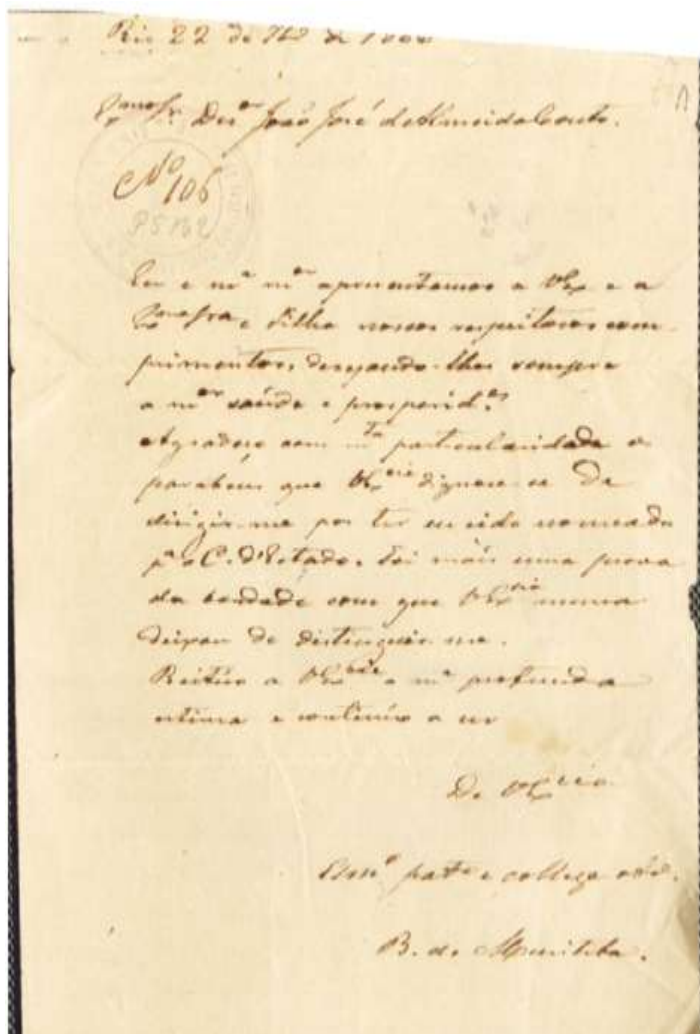 Rio 22 de 7bro de 1888
Exmo Sr. Desor João José de Almeida Couto.
No 106
P5162
Eu e ma mer apresentamos a VEx e a
Exma Sra e Filha nossos respeitosos com-
primentos, desejando-lhes sempre
a mor saúde e prosperides
Agradeço com mta particularidade o
parabens que VExcia dignou-se de
dirigir-me por ter eu sido nomeado
pa o C. d'Estado. Foi mais uma prova
da bondade com que VExcia nunca
deixou de distinguir-me.
Reitero a VExcia a ma profunda
estima e continúo a ser
De VExcia
pate e collega
B. de Muritiba.